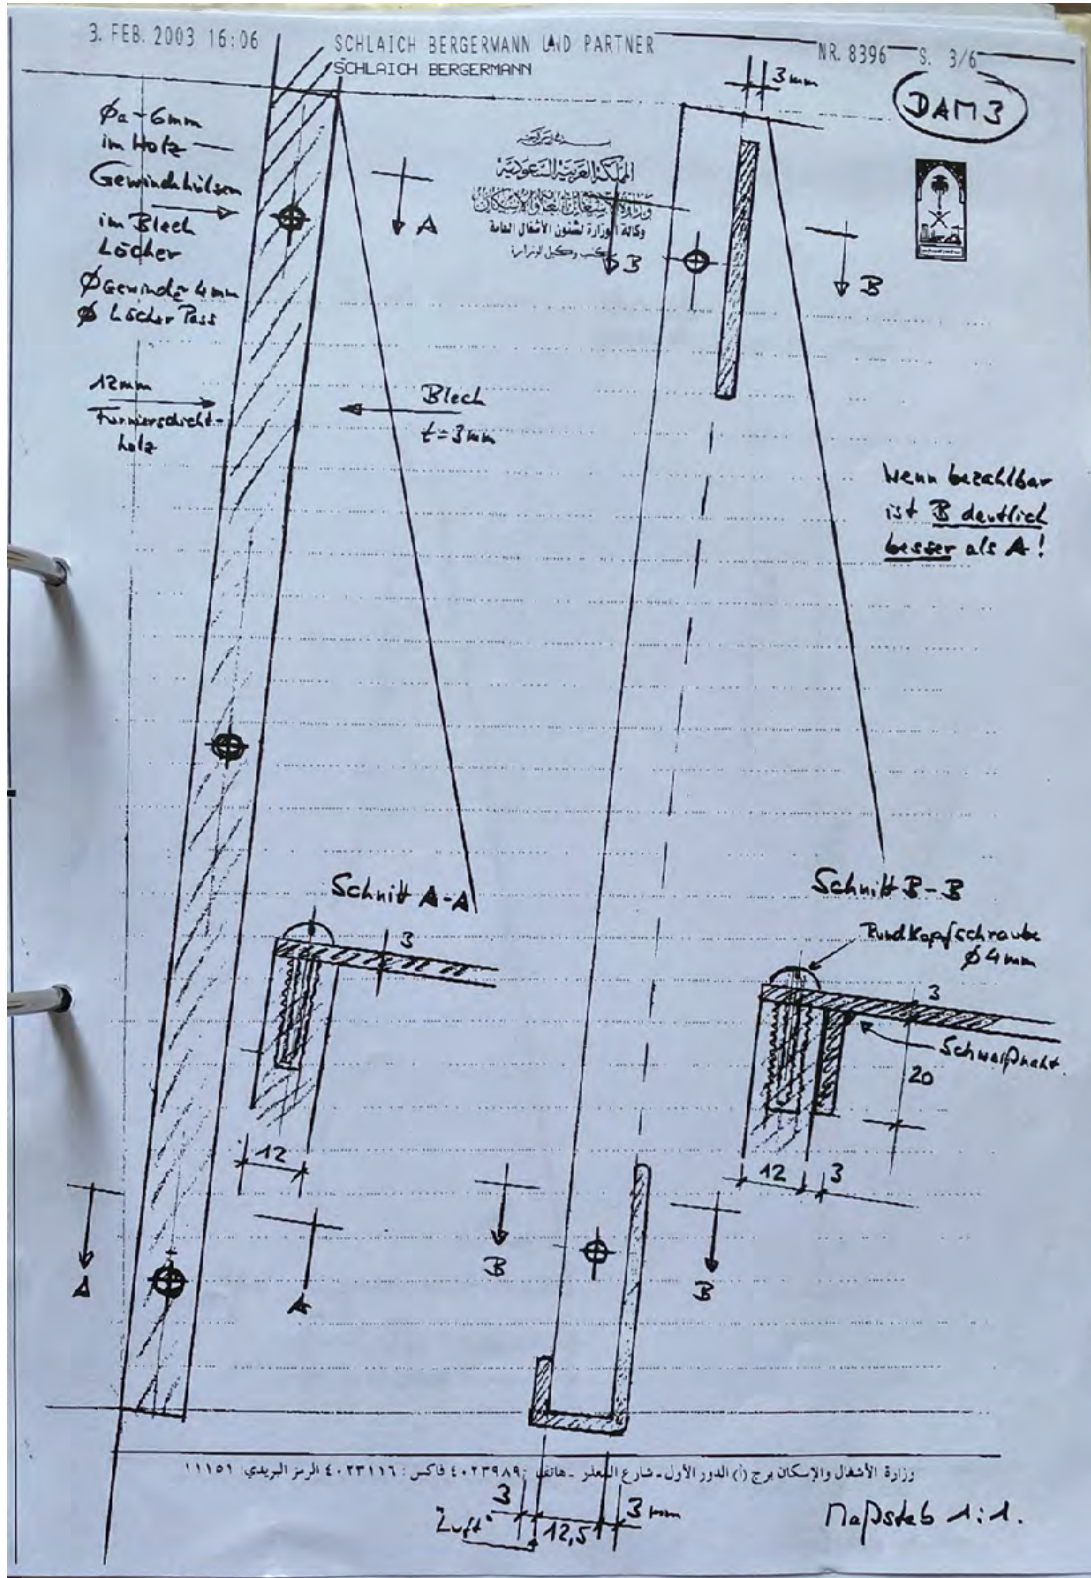 3. FEB. 2003 16:06
SCHLAICH BERGERMANN UND PARTNER
NR. 8396
S. 3/6
SCHLAICH BERGERMANN
3mm
DAM3
Øa ~ 6mm
im Holz
Gewindehülsen
im Blech
Löcher
ØGewinde ~ 4mm
Ø Löcher Pass
المملكة العربية السعودية
وزارة الأشغال العامة والإسكان
وكالة الوزارة لشئون الأشغال العامة
مكتب وكيل الوزارة
A
B
B
12mm
Furnierschicht-
holz
Blech
t = 3mm
Wenn bezahlbar
ist B deutlich
besser als A!
Schnitt A-A
Schnitt B-B
3
Rundkopfschraube
Ø 4mm
3
Schweißnaht
20
12
12
3
A
A
B
B
وزارة الأشغال والإسكان برج (أ) الدور الأول - شارع المعذر - هاتف: ٤٠٢٣٩٨٩ فاكس: ٤٠٢٣١١٦ الرمز البريدي: ١١١٥١
3
"Luft"
12,5
3mm
Maßstab 1:1.